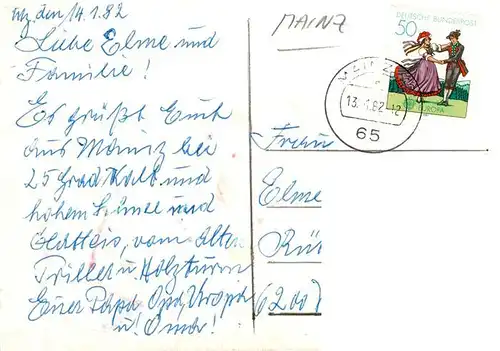 Mz, den 14.1.82
Liebe Elme und
Familie!
Es grüßt Euch
aus Mainz bei
25 Grad Kalt und
hohem Schnee und
Glatteis, vom alten
Triller u. Holzturm
Euer Papa, Opa, Uropa
u. Oma!
MAINZ
DEUTSCHE BUNDESPOST
50
EUROPA
MAINZ
13.-1.82-12
65
Frau
Elme
Rüt
6200